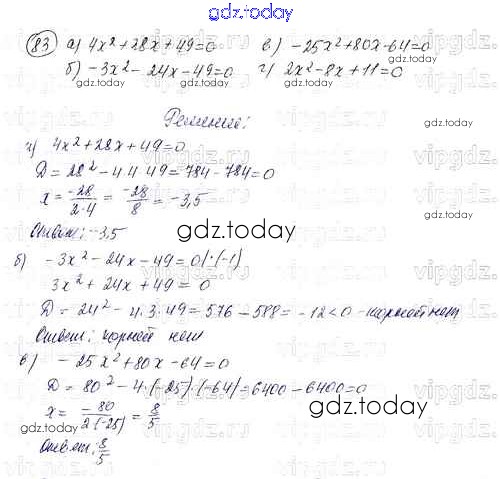 gdz.today
83 а) 4x² + 28x + 49 = 0 в) -25x² + 80x - 64 = 0
б) -3x² - 24x - 49 = 0 г) 2x² - 8x + 11 = 0
gdz.today gdz.today
Решение:
а) 4x² + 28x + 49 = 0
D = 28² - 4·4·49 = 784 - 784 = 0
x = -28/2·4 = -28/8 = -3,5
gdz.today
Ответ: -3,5
gdz.today
б) -3x² - 24x - 49 = 0 |·(-1)
3x² + 24x + 49 = 0
D = 24² - 4·3·49 = 576 - 588 = -12 < 0 - корней нет
Ответ: корней нет
в) -25x² + 80x - 64 = 0
D = 80² - 4·(-25)·(-64) = 6400 - 6400 = 0
x = -80/2·(-25) = 8/5
gdz.today
gdz.today
Ответ: 8/5